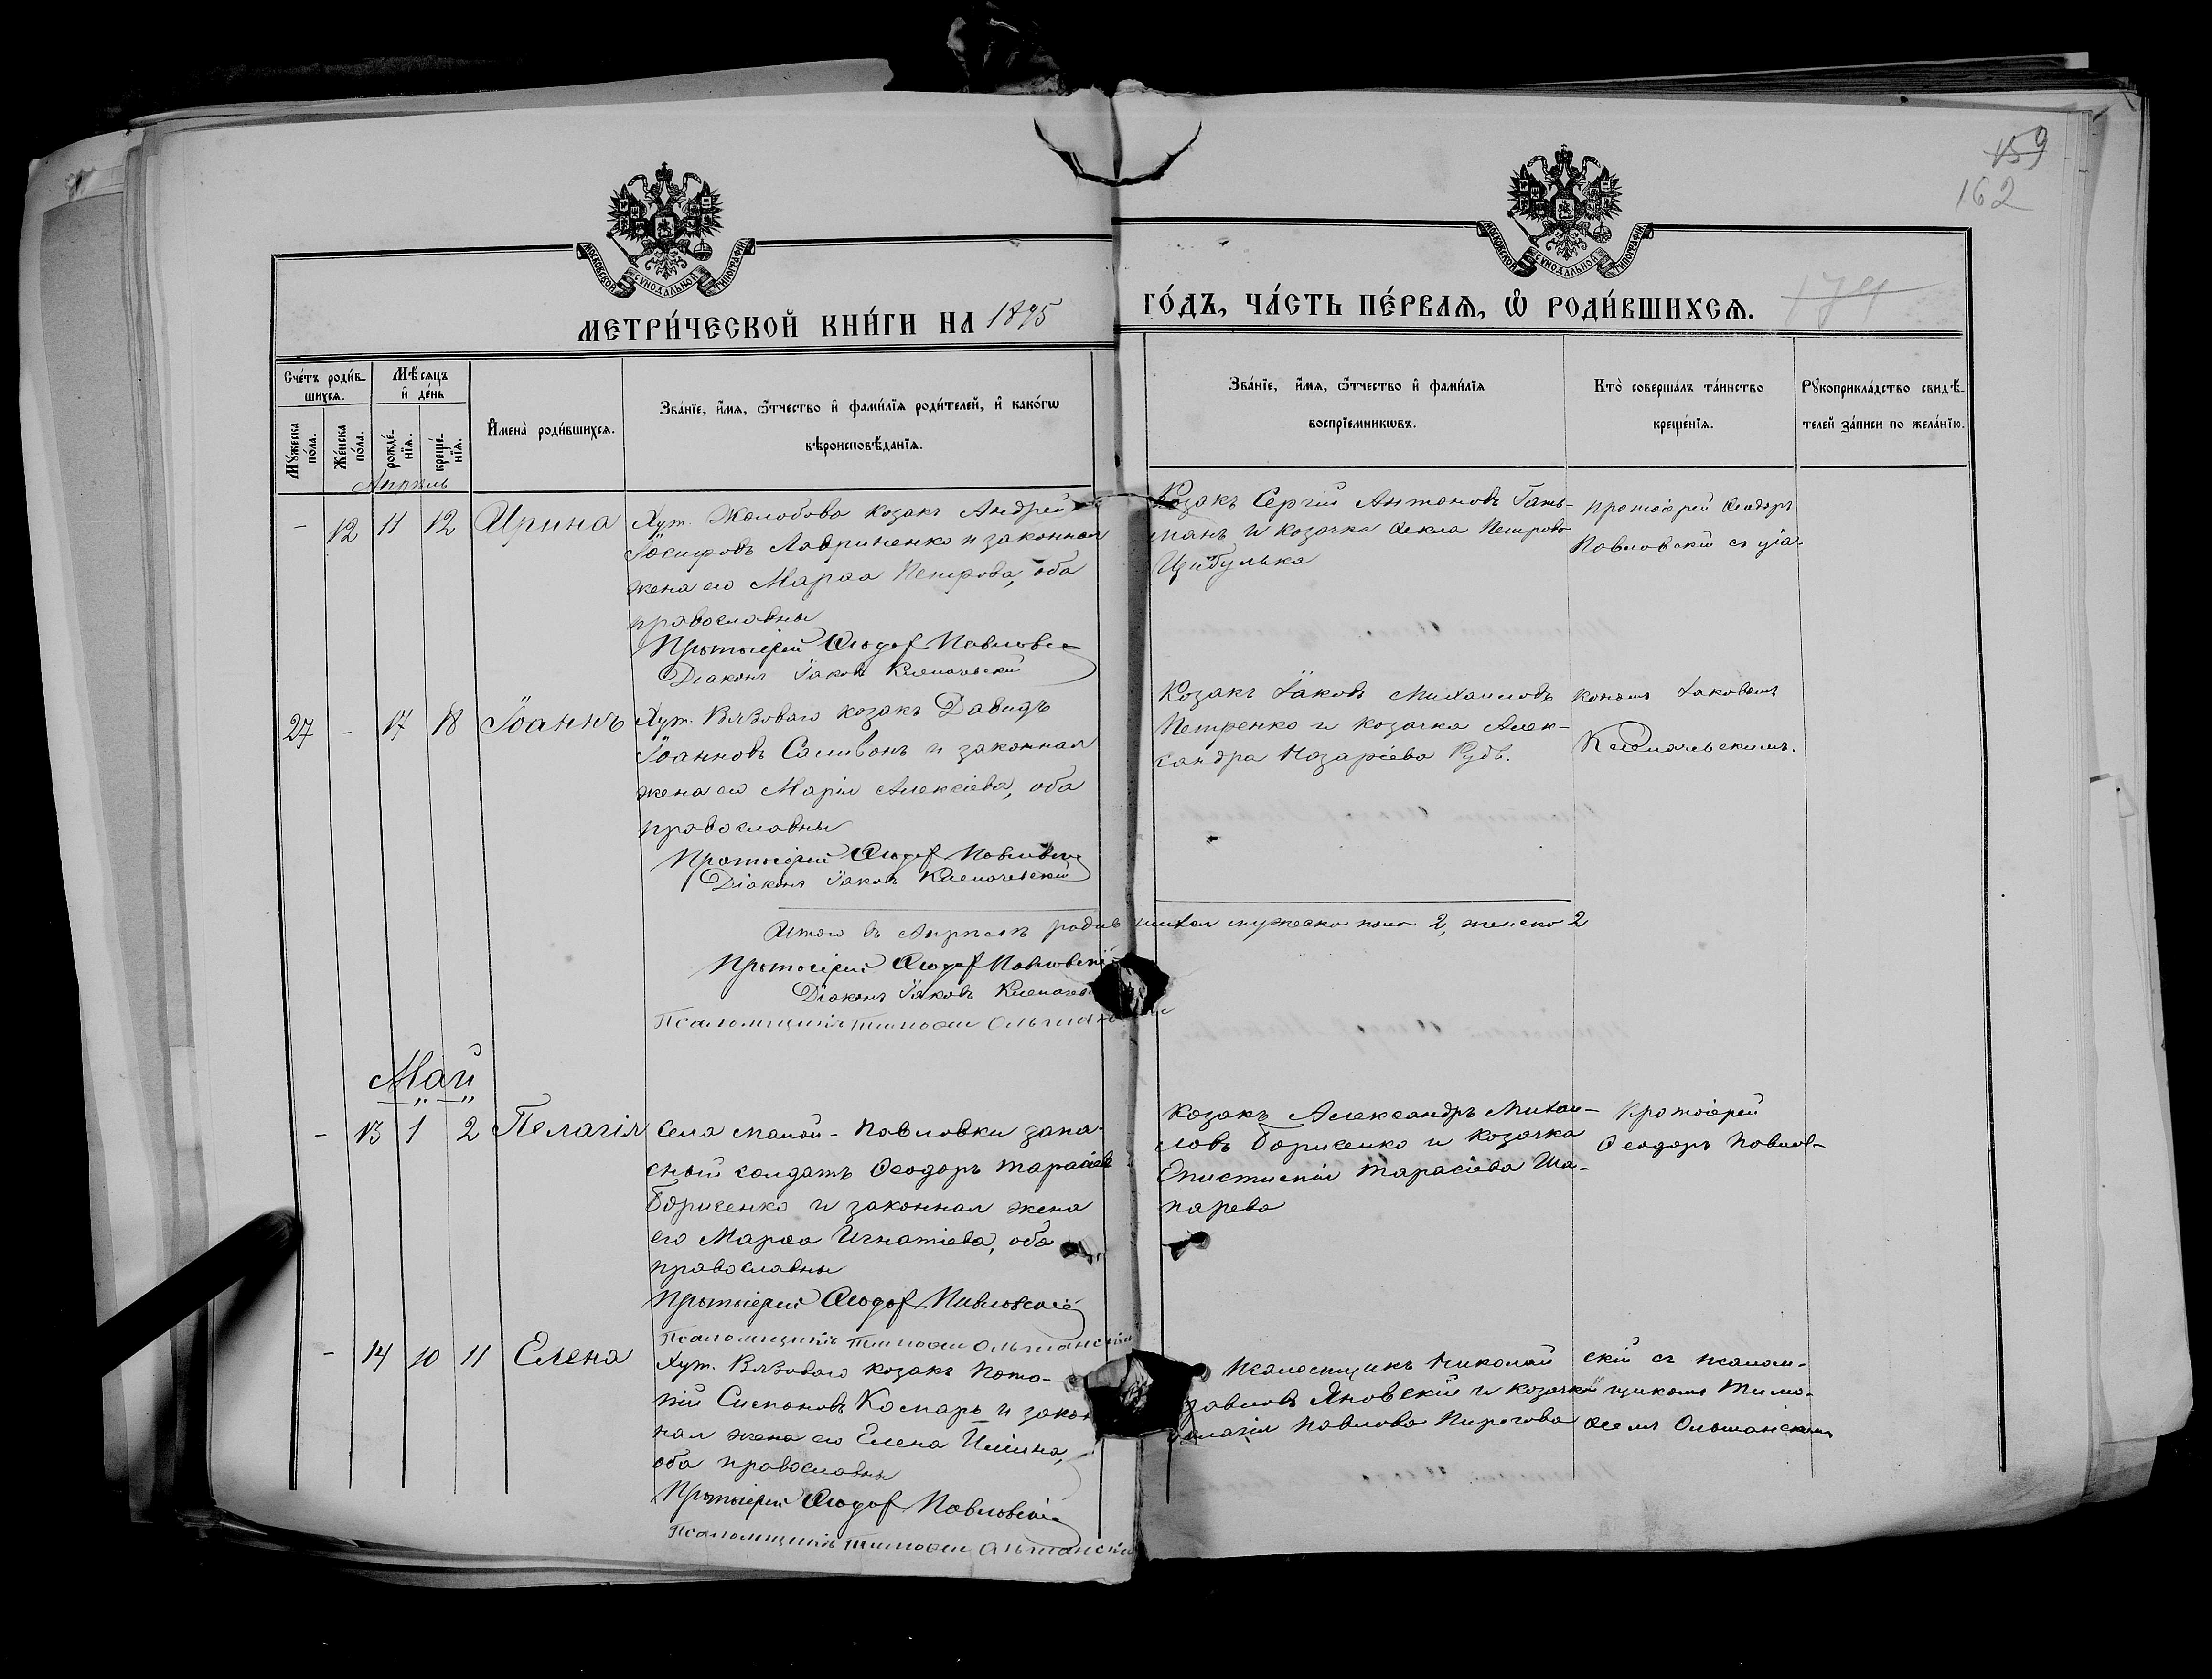 159
162
МОСКОВСКОЙ СѴНОДАЛЬНОЙ ТИПОГРАФІИ
МОСКОВСКОЙ СѴНОДАЛЬНОЙ ТИПОГРАФІИ
МЕТРИ́ЧЕСКОЙ КНИ́ГИ НА 1895 ГО́ДЪ, ЧА́СТЬ ПЕ́РВАЯ, Ѡ҆ РОДИ́ВШИХСЯ.
174
Сче́тъ роди́в-
шихся.
Мꙋжеска
по́ла.
Же́нска
по́ла.
Мѣ́сяцъ
и҆ де́нь
рожде́-
нїя.
креще́-
нїя.
И҆мена̀ роди́вшихся.
Зва́нїе, и҆́мя, ѻ҆́тчество и҆ фами́лїя роди́телей, и҆ како́гѡ
вѣроисповѣ́данїя.
Зва́нїе, и҆́мя, ѻ҆́тчество и҆ фами́лїя
воспрїе́мникѡвъ.
Кто̀ соверша́лъ та́инство
креще́нїя.
Рꙋкоприкла́дство свидѣ́-
телей за́писи по жела́нїю.
Апрѣль
- 12 11 12 Ирина
Хут. Жолобова козакъ Андрей
Іосифовъ Лавриненко и законная
жена его Марѳа Петрова, оба
православны
Протоіерей Ѳеодоръ Павловскій
Діаконъ Іаковъ Клепачевскій
Козакъ Сергій Антоновъ Гать-
манъ и козачка Ѳекла Петрова
Цибулька
Протоіерей Ѳеодоръ
Павловскій съ діа-
27 - 17 18 Іоаннъ
Хут. Вязоваго козакъ Давидъ
Іоанновъ Саливонъ и законная
жена его Марія Алексіева, оба
православны
Протоіерей Ѳеодоръ Павловскій
Діаконъ Іаковъ Клепачевскій
Козакъ Іаковъ Михаиловъ
Петренко и козачка Алек-
сандра Назаріева Рудь.
кономъ Іаковомъ
Клепачевскимъ.
Итого въ Апрѣлѣ родившихся мужеска пола 2, женска 2
Протоіерей Ѳеодоръ Павловскій
Діаконъ Іаковъ Клепачев
Псаломщикъ Тимоѳей Ольшанскій
Май
- 13 1 2 Пелагія
Села Малой-Павловки запа-
сный солдатъ Ѳеодоръ Тарасіевъ
Борисенко и законная жена
его Марѳа Игнатіева, оба
православны
Протоіерей Ѳеодоръ Павловскій
Псаломщикъ Тимоѳей Ольшанскій
Козакъ Александръ Михаи-
ловъ Борисенко и козачка
Епистимія Тарасіева Ша-
парева
Протоіерей
Ѳеодоръ Павлов-
- 14 10 11 Елена
Хут. Вязоваго козакъ Пота-
пій Симоновъ Каспаръ и закон
ная жена его Елена Иліина,
оба православны
Протоіерей Ѳеодоръ Павловскій
Псаломщикъ Тимоѳей Ольшанскій
Псаломщикъ Николай
Павловъ Яновскій и козачка
Пелагія Павлова Пирогова
скій съ псалом-
щикомъ Тимо-
ѳеемъ Ольшанскимъ